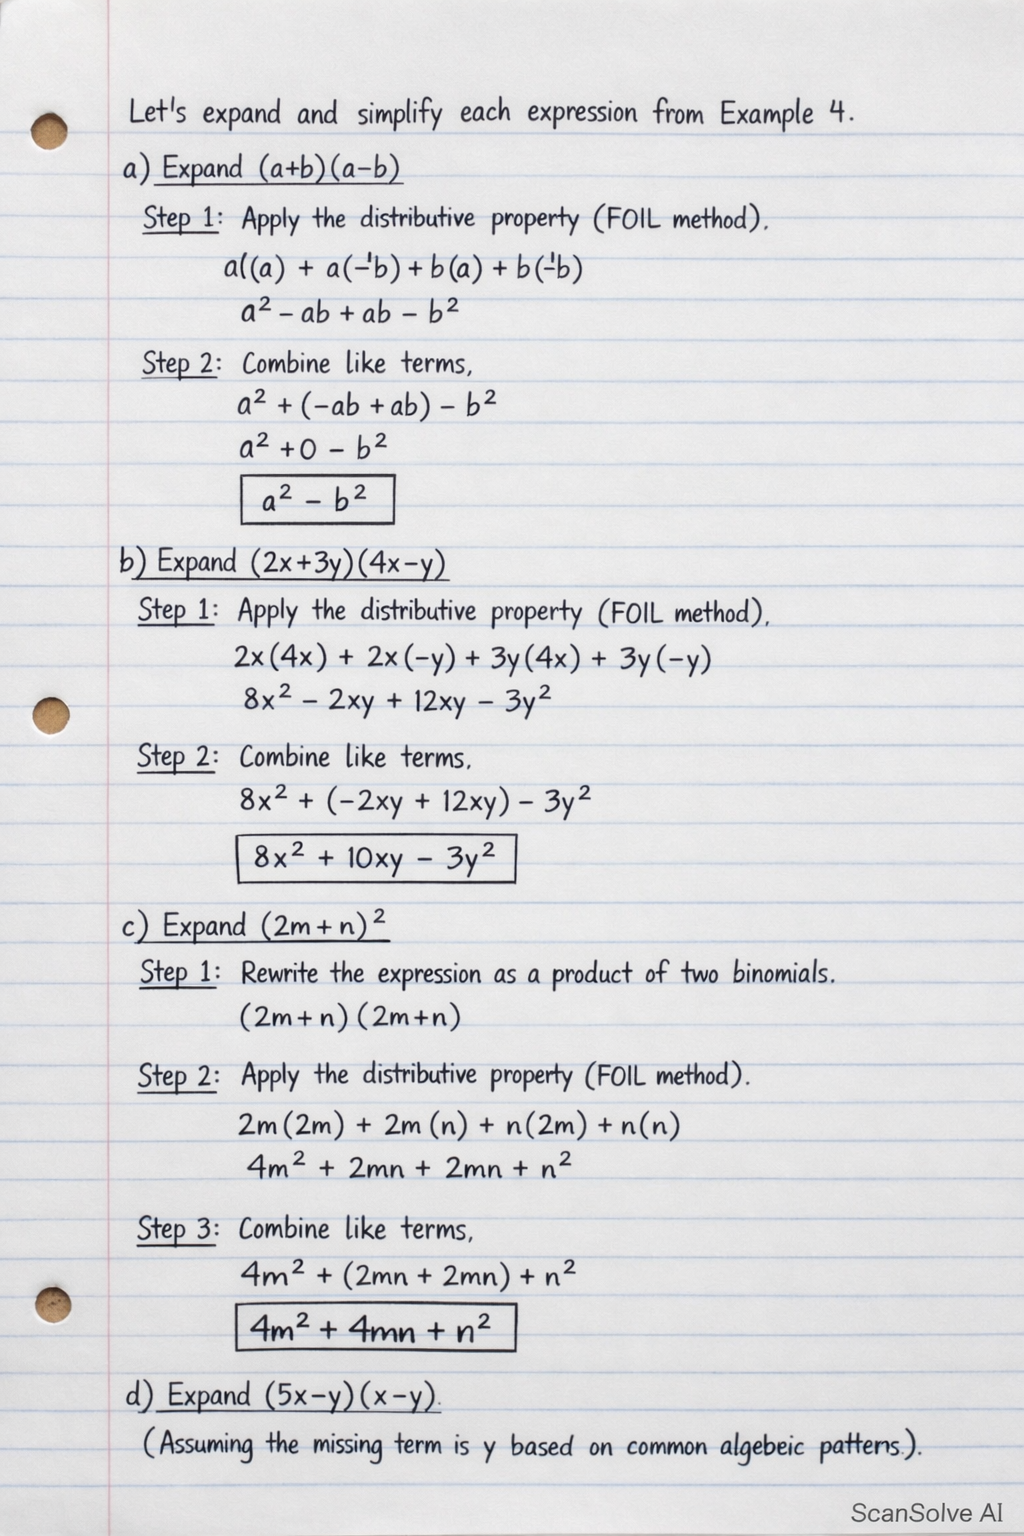 Let's expand and simplify each expression from Example 4.
a) Expand (a+b)(a-b)
Step 1: Apply the distributive property (FOIL method).
a((a) + a(-'b) + b(a) + b(-'b)
a² - ab + ab - b²
Step 2: Combine like terms,
a² + (-ab + ab) - b²
a² +0 - b²
a² - b²
b) Expand (2x+3y)(4x-y)
Step 1: Apply the distributive property (FOIL method),
2x(4x) + 2x(-y) + 3y(4x) + 3y(-y)
8x² - 2xy + 12xy - 3y²
Step 2: Combine like terms.
8x² + (-2xy + 12xy) - 3y²
8x² + 10xy - 3y²
c) Expand (2m+n)²
Step 1: Rewrite the expression as a product of two binomials.
(2m+n)(2m+n)
Step 2: Apply the distributive property (FOIL method).
2m(2m) + 2m(n) + n(2m) + n(n)
4m² + 2mn + 2mn + n²
Step 3: Combine like terms,
4m² + (2mn + 2mn) + n²
4m² + 4mn + n²
d) Expand (5x-y)(x-y).
(Assuming the missing term is y based on common algebeic patterns.).
ScanSolve AI